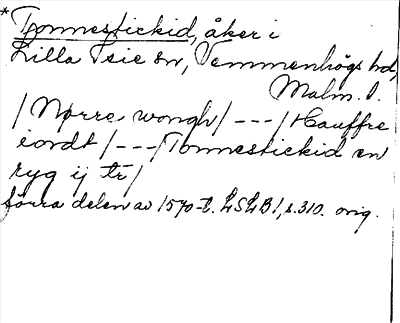 * Tonnestickid, åker i
Lilla Isie sn, Vemmenhögs hd,
Malm. l.
/Nørre wongh/ ---/Hauffre
iordt/---/Tonnestickid en
ryg ij tr/
förra delen av 1570-t. LSLB1, s.310. orig.